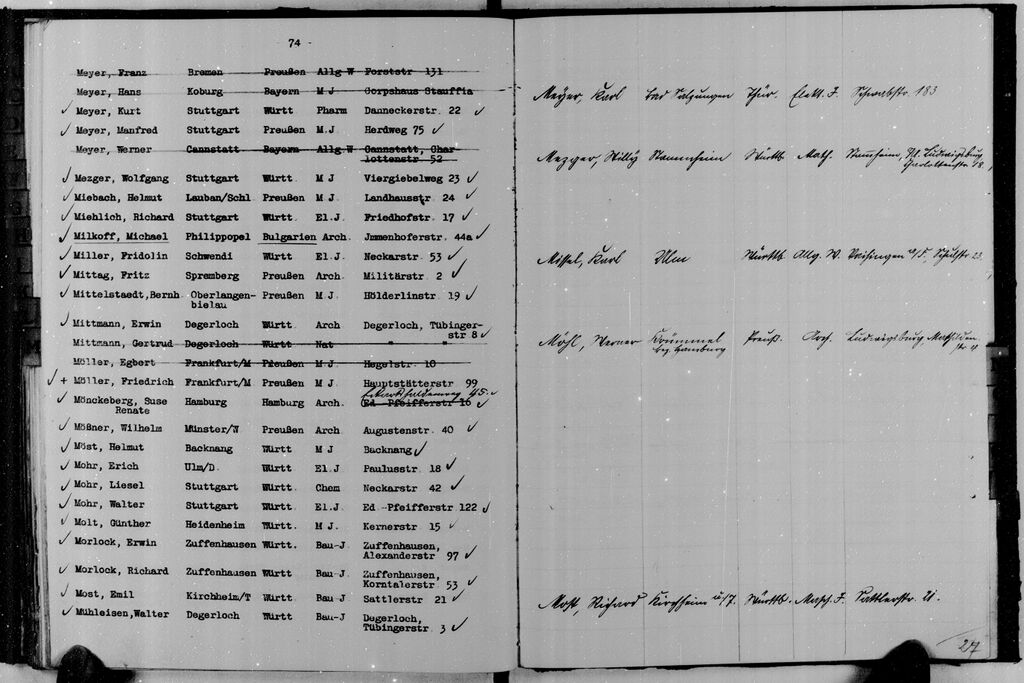 - 74 -
Meyer, Franz Bremen Preußen Allg W Forststr 131
Meyer, Hans Koburg Bayern M J Corpshaus Stauffia
✓ Meyer, Kurt Stuttgart Württ Pharm Danneckerstr. 22 ✓
✓ Meyer, Manfred Stuttgart Preußen M.J Herdweg 75 ✓
Meyer, Werner Cannstatt Bayern Allg W Cannstatt, Char
lottenstr 52
✓ Mezger, Wolfgang Stuttgart Württ. M J Viergiebelweg 23 ✓
✓ Miebach, Helmut Lauban/Schl Preußen M J Landhausstr 24 ✓
✓ Miehlich, Richard Stuttgart Württ. El.J Friedhofstr. 17 ✓
✓ Milkoff, Michael Philippopel Bulgarien Arch. Jmmenhoferstr. 44a ✓
✓ Miller, Fridolin Schwendi Württ El.J. Neckarstr. 53 ✓
✓ Mittag, Fritz Spremberg Preußen Arch. Militärstr. 2 ✓
✓ Mittelstaedt,Bernh Oberlangen- Preußen M.J. Hölderlinstr. 19 ✓
bielau
✓ Mittmann, Erwin Degerloch Württ. Arch Degerloch, Tübinger-
str 8 ✓
Mittmann, Gertrud Degerloch Württ Nat " "
Möller, Egbert Frankfurt/M Preußen M.J Hegelstr 10
✓ + Möller, Friedrich Frankfurt/M. Preußen M.J Hauptstätterstr 99
✓ Mönckeberg, Suse Hamburg Hamburg Arch. Ed -Pfeifferstr 16 ✓
Renate 45. ✓
✓ Mößner, Wilhelm Münster/W Preußen Arch. Augustenstr. 40 ✓
✓ Möst, Helmut Backnang Württ M J Backnang ✓
✓ Mohr, Erich Ulm/D. Württ. El.J Paulusstr. 18 ✓
✓ Mohr, Liesel Stuttgart Württ. Chem Neckarstr 42 ✓
✓ Mohr, Walter Stuttgart Württ. El.J. Ed -Pfeifferstr 122 ✓
✓ Molt, Günther Heidenheim Württ. M J. Kernerstr 15 ✓
✓ Morlock, Erwin Zuffenhausen Württ. Bau-J Zuffenhausen,
Alexanderstr 97 ✓
✓ Morlock, Richard Zuffenhausen Württ Bau-J. Zuffenhausen,
Korntalerstr 53 ✓
✓ Most, Emil Kirchheim/T Württ Bau J Sattlerstr 21 ✓
✓ Mühleisen,Walter Degerloch Württ Bau-J Degerloch,
Tübingerstr 3 ✓
Meyer, Karl Bad Salzungen Thür. Elekt. J. Schwabstr 183
Mezger, Willy Stammheim Württb Math. Stammheim, Ludwigsburg
18
Missel, Karl Ulm Württb Allg. W. Vaihingen a/F, Schulstr 23
Möhl, Werner Krümmel Preuß. Arch. Ludwigsburg, Mathilden
bez. Hamburg str 4
Most, Richard Kirchheim u/T. Württb. Masch. J. Sattlerstr. 21.
217